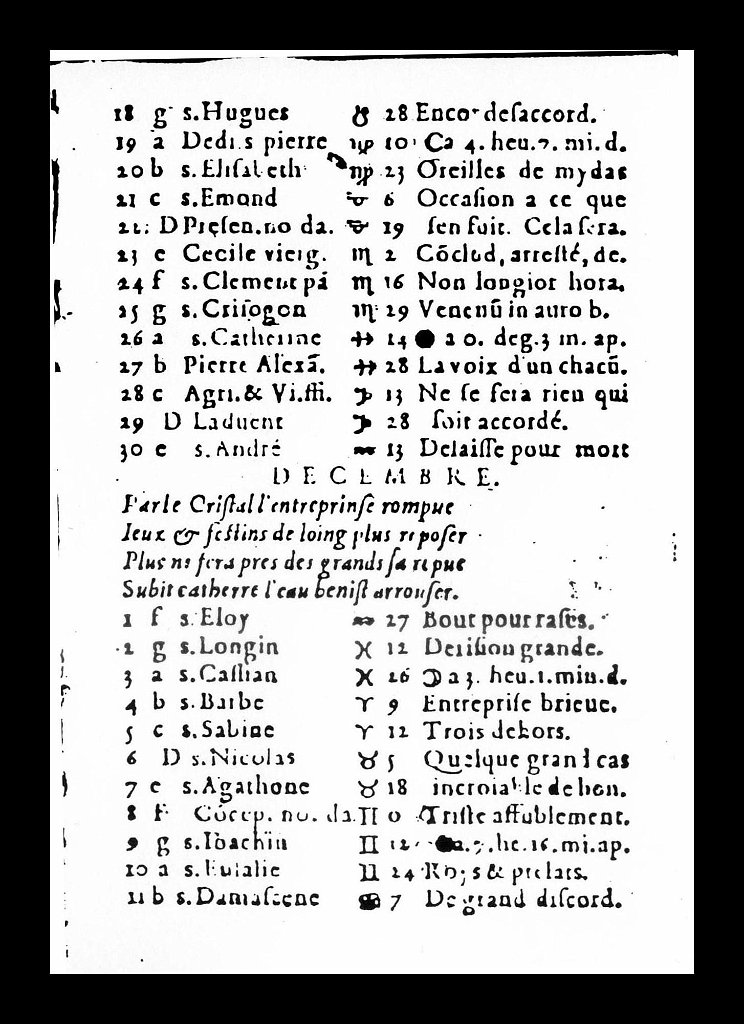 18 g s.Hugues ♉ 28 Encor desaccord.
19 a Dedi.s pierre ♍ 10 Ca 4. heu.7. mi.d.
20 b s.Elisabeth ♍ 23 Oreilles de mydas
21 c s.Emond ♎ 6 Occasion a ce que
22. D Presen.no da. ♎ 19 sen suit. Cela sera.
23 e Cecile vierg. ♏ 2 Cõclud, arresté, de.
24 f s.Clement pá ♏ 16 Non longior hora.
25 g s.Crisogon ♏ 29 Venenũ in auro b.
26 a s.Catherine ♐ 14 ● a 0. deg.3 m. ap.
27 b Pierre Alexã. ♐ 28 La voix d'un chacũ.
28 c Agri.& Vi.ffi. ♑ 13 Ne se sera rien qui
29 D Laduent ♑ 28 soit accordé.
30 e s.André ♒ 13 Delaisse pour mort
DECEMBRE.
Par le Cristal l'entreprinse rompue
Ieux & festins de loing plus reposer
Plus ne fera pres des grands sa repue
Subit catherre l'eau benist arrouser.
1 f s.Eloy ♒ 27 Bout pour rases.
2 g s.Longin ♓ 12 Derision grande.
3 a s.Cassian ♓ 26 ☽ a 3. heu.1.min.d.
4 b s.Barbe ♈ 9 Entreprise brieue.
5 c s.Sabine ♈ 12 Trois dehors.
6 D s.Nicolas ♉ 5 Quelque grand cas
7 e s.Agathone ♉ 18 incroiable de bon.
8 F Cõcep. no. da. ♊ 0 Triste affublement.
9 g s.Ioachin ♊ 12 ● a.7.he.16.mi.ap.
10 a s.Eulalie ♊ 24 Roys & prelats.
11 b s.Damascene ♋ 7 De grand discord.